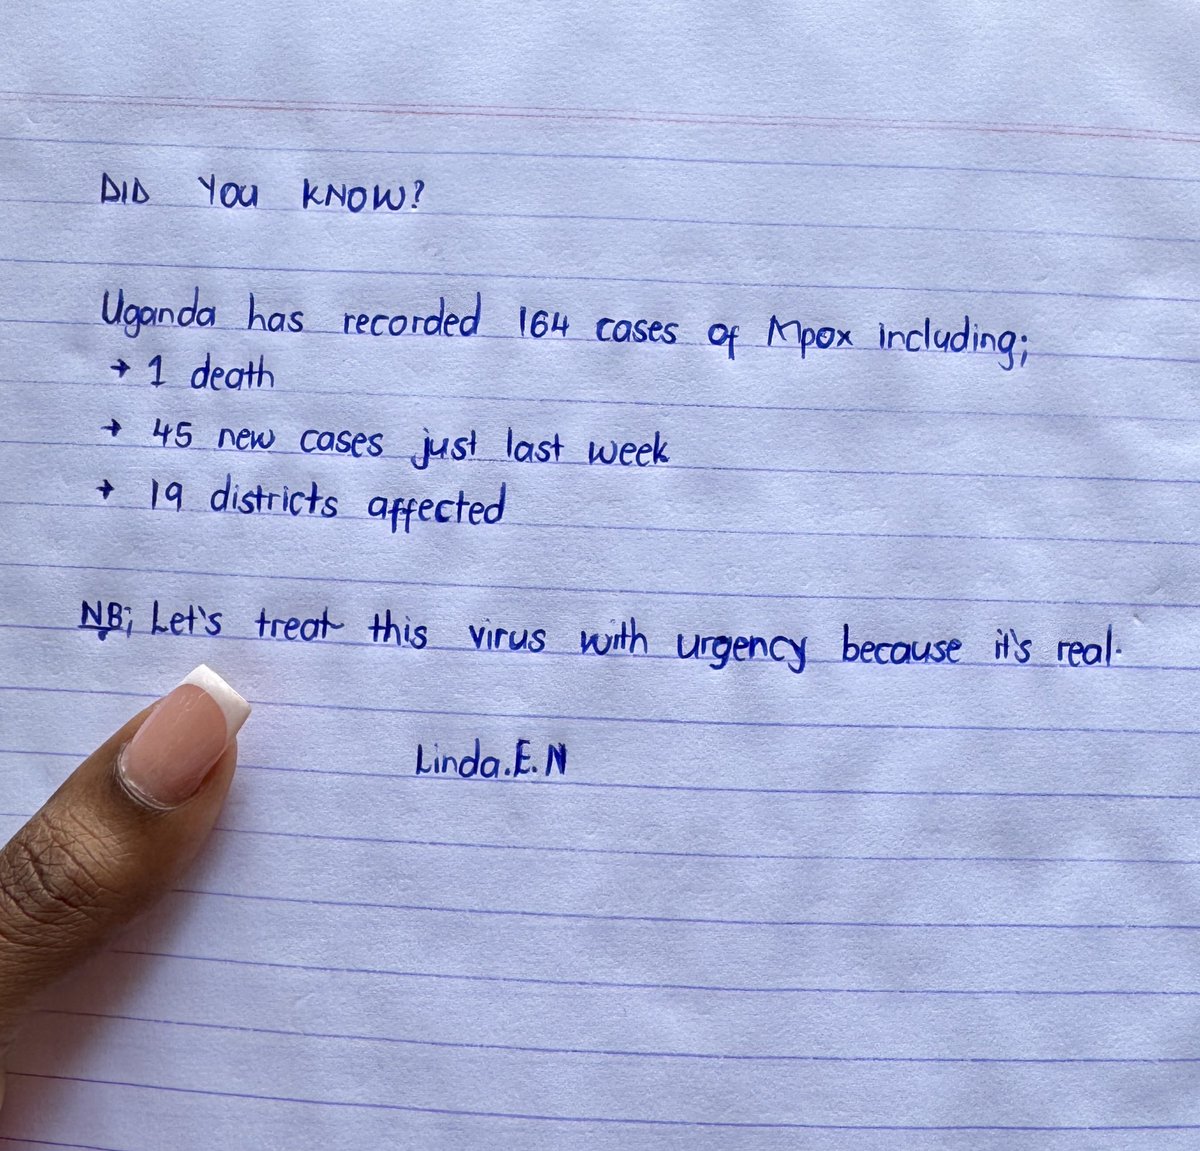 DID YOU KNOW?
Uganda has recorded 164 cases of Mpox including;
→ 1 death
→ 45 new cases just last week
→ 19 districts affected
NB; Let's treat this virus with urgency because it's real.
Linda.E.N